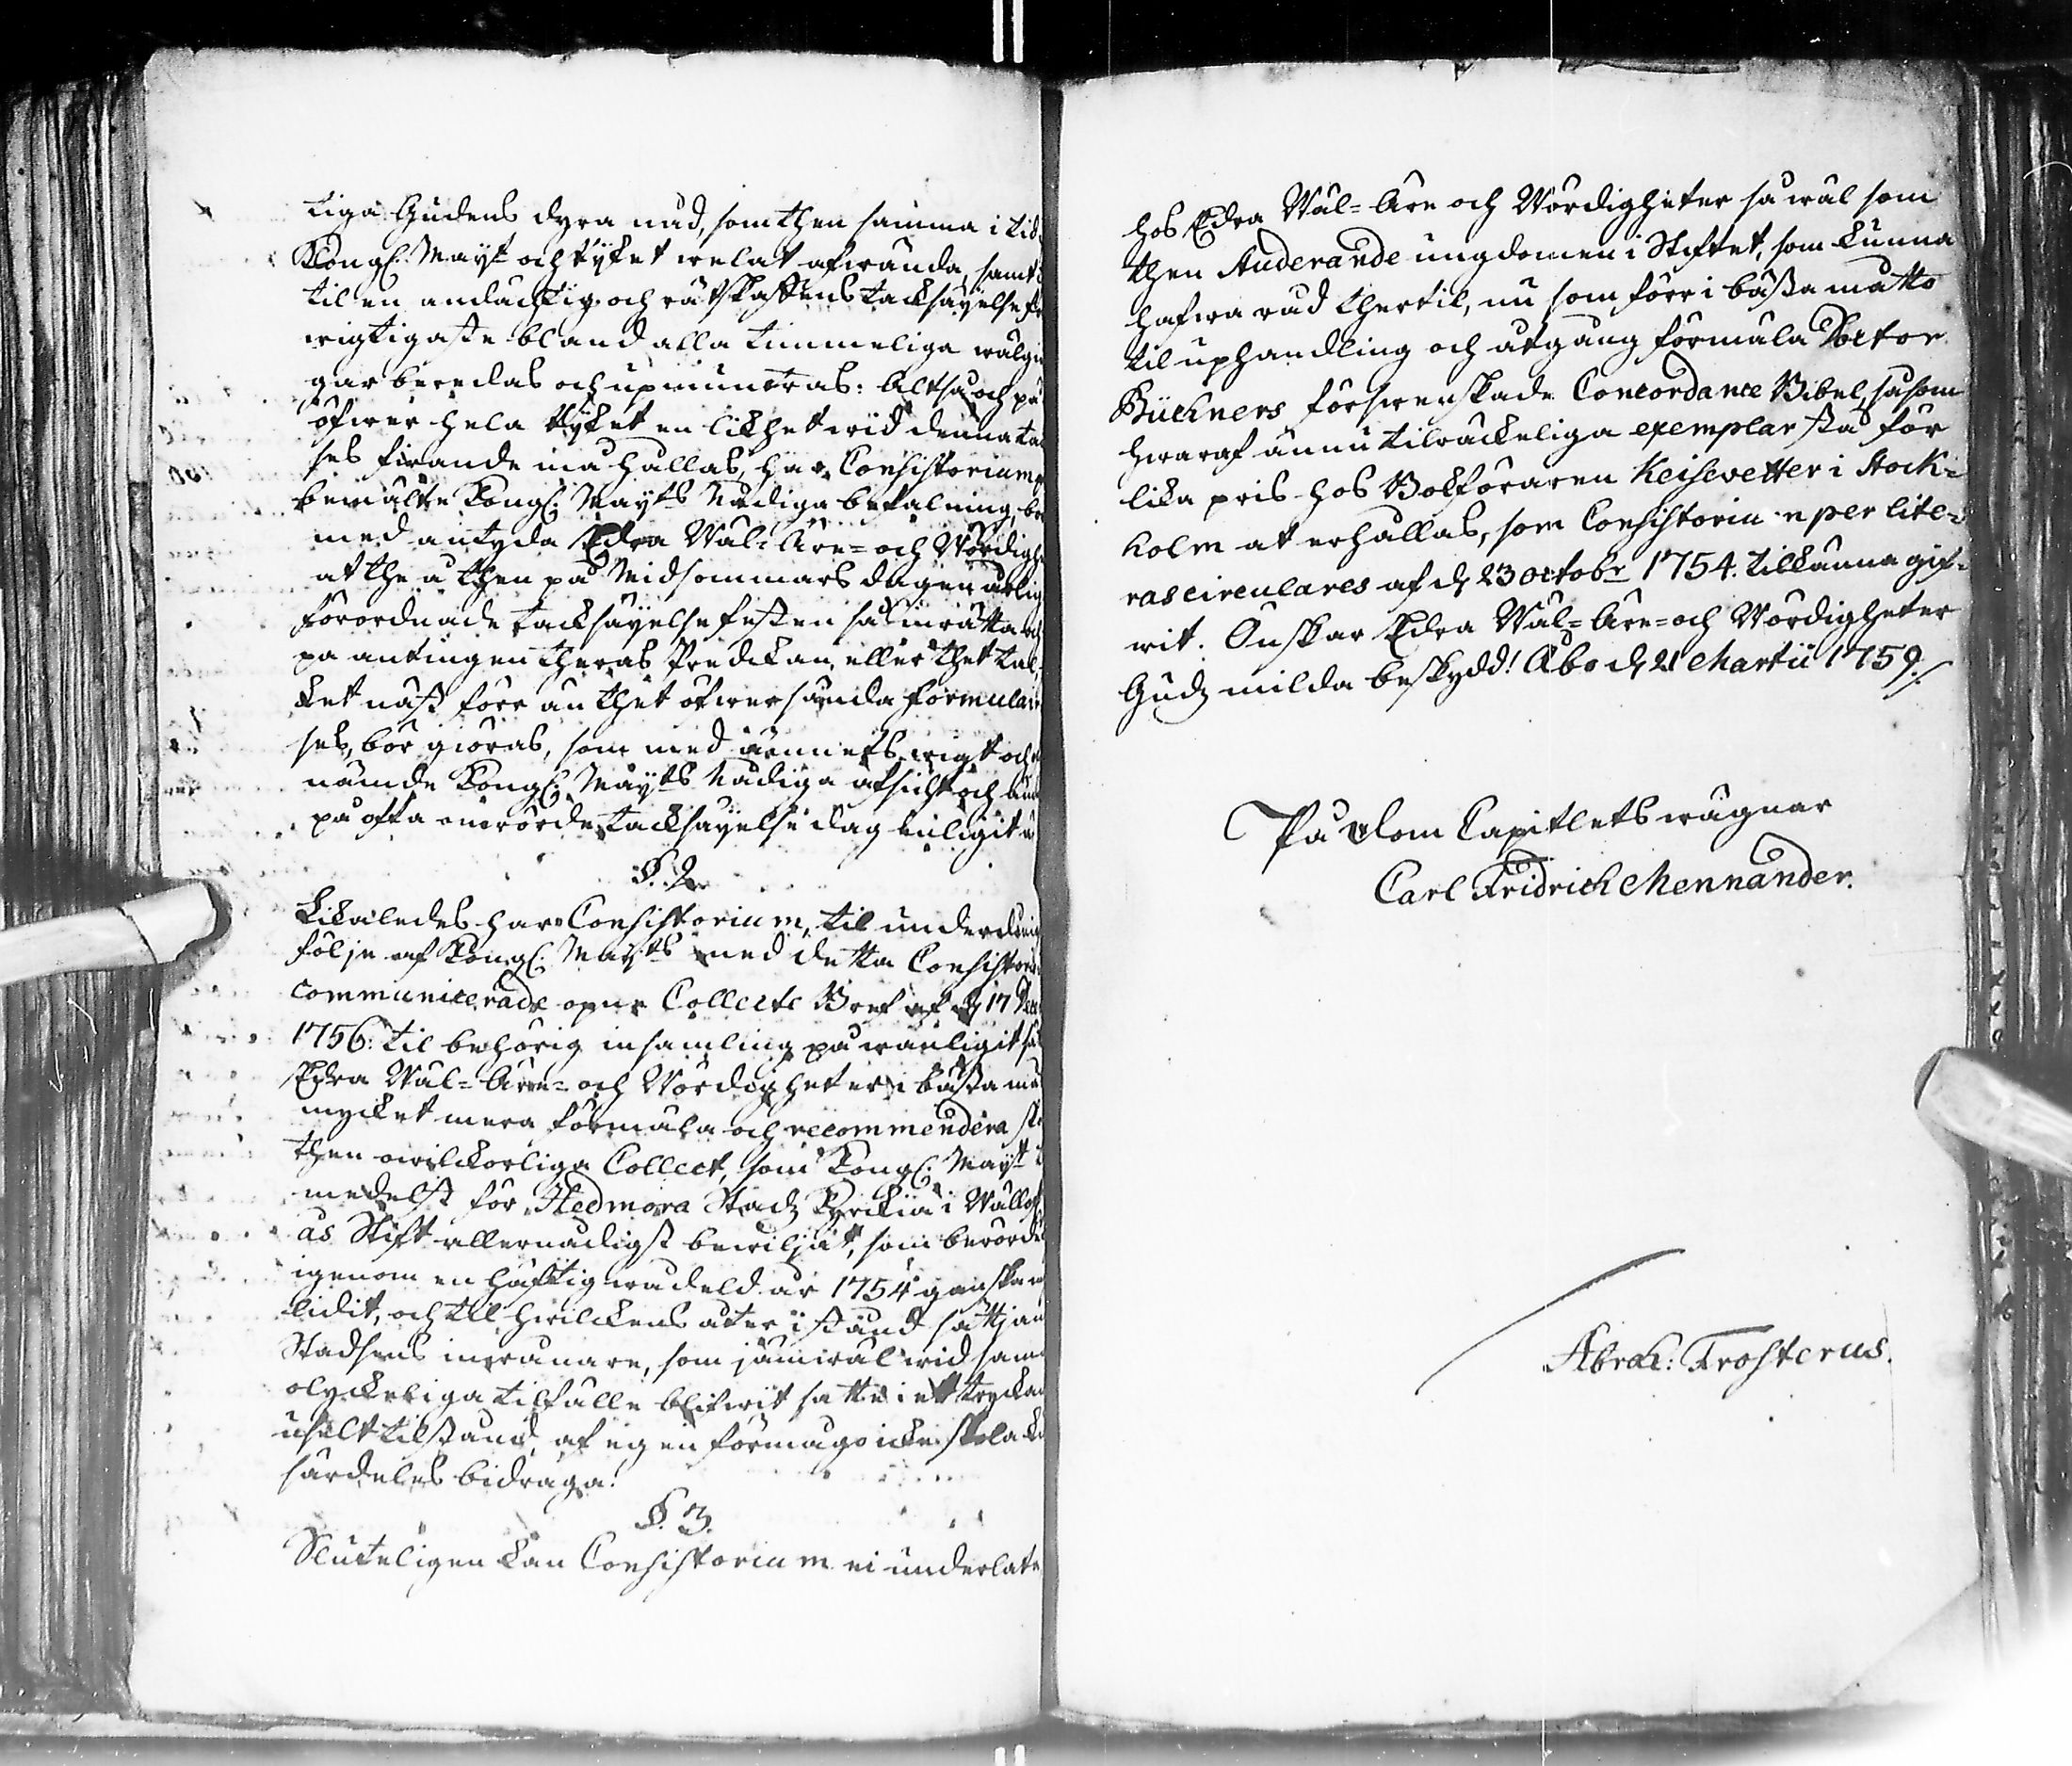 tiga Gudens dyra nåd, som then samma i tid
Kongl. Mayt och Ryket welat afwända, samt
til en andächtig och rätskaffens tacksäyelse
wigtigaste bland alla timmeliga wälg
gar beredas och upmuntras: Altså och på
öfwer hela Ryket en likhet wid denna ta
ses firande må hållas, har Consistorium
bemälte Kongl. Mayts Nådiga befalning,
med antyda Edra Wäl-Äre- och Wördigh
at the å then på Midsommars dagen årlig
förordnade tacksäyelse festen så inrätta
på antingen theras Predikan, eller thet tal,
ket näst förr än thet öfwersända Formulair
ses, bör giöras, som med ämnets wigt och
nämde Kongl. Mayts Nådiga afsicht och
på ofta anrörde tacksäyelse dag enligit
§. 2.
Likaledes har Consistorium, til underdånig
följe af Kongl. Mayts med detta Consistori
communicerade öpne Collecte Bref af d 17 Dec
1756. til behörig insamling på wanligit sä
Edra Wäl-Äre- och Wördigheter i bästa må
mycket mera förmäla och recommendera
then owilckorliga Collect, som Kongl. Mayt
medelst för Hedmora Stadz Kyrckia i Wäster
ås Stift allernådigst bewiljat, som berörde
igenom en häftig wådeld år 1754 ganska
lidit, och til hwilckens åter i stånd sättjan
Stadsens inwånare, som jämwäl wid sam
olyckeliga tilfälle blifwit satte i ett tryckan
uselt tilstånd, af egen förmågo icke skola
särdeles bidraga.
§. 3.
Sluteligen kan Consistorium ei underlåta
hos Edra Wäl-Äre och Wördigheter så wäl som
then Studerande ungdomen i Stiftet, som kunna
hafwa råd thertil, nu som förr i bästa matto
til uphandling och afgång förmäla Doctor
Büchners förswenskade Concordance Bibel, såsom
hwaraf ännu tilräckeliga exemplar stå för
lika pris hos Bokföraren Keisewetter i Stock-
holm at erhållas, som Consistorium per lite-
ras circulares af d 23 Octobr 1754. tilkänna gif-
wit. Önskar Edra Wäl-Äre- och Wördigheter
Gudz milda beskydd! Åbo d 21 Martii 1759./.
På Dom Capitlets wägnar
Carl Fridrich Mennander.
Abrah: Frosterus.